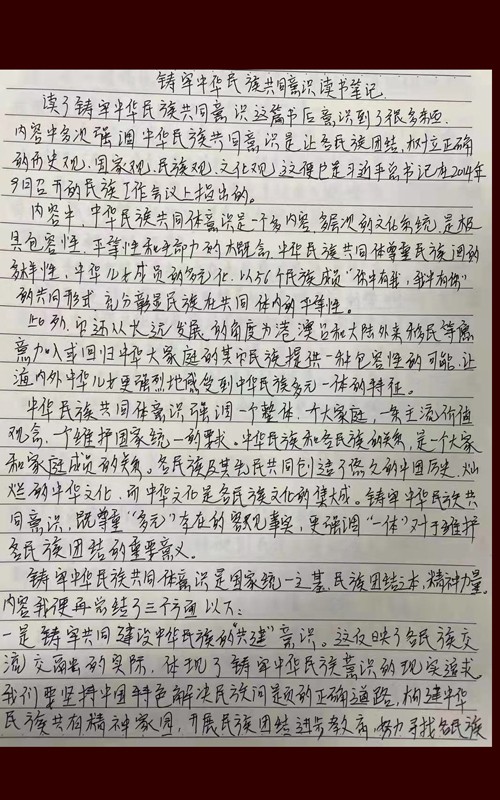 铸牢中华民族共同意识读书笔记
读了铸牢中华民族共同意识这篇书后意识到了很多东西
内容中多次强调中华民族共同意识是让各民族团结,树立正确
的历史观、国家观、民族观、文化观,这便是习近平总书记在2014年
9月召开的民族工作会议上指出的。
内容中,中华民族共同体意识是一个多内容多层次的文化系统,是极
具包容性、平等性和生命力的大概念,中华民族共同体尊重民族间的
多样性,中华儿女成员的多元化,以56个民族成员“你中有我,我中有你”
的共同形式,充分彰显民族在共同体内的平等性。
此外,页还从长远发展的角度为港澳台和大陆外来移民等愿
意加入或回归中华大家庭的其它民族提供一种包容性的可能,让
海内外中华儿女更强烈地感受到中华民族多元一体的特征。
中华民族共同体意识强调一个整体,个大家庭,一条主流价值
观念,一个维护国家统一的要求。中华民族和各民族的关系,是一个大家
和家庭成员的关系。各民族及其先民共同创造了悠久的中国历史、灿
烂的中华文化,而中华文化是各民族文化的集大成。铸牢中华民族共
同意识,既尊重“多元”存在的客观事实,更强调“一体”对于维护
各民族团结的重要意义。
铸牢中华民族共同体意识是国家统一之基、民族团结之本、精神力量。
内容我便再总结了三个方面以下:
一是铸牢共同建设中华民族的“共建”意识。这反映了各民族交
流交融的实际,体现了铸牢中华民族意识的现实追求
我们要坚持中国特色解决民族问题的正确道路,构建中华
民族共有精神家园,开展民族团结进步教育,努力寻找各民族